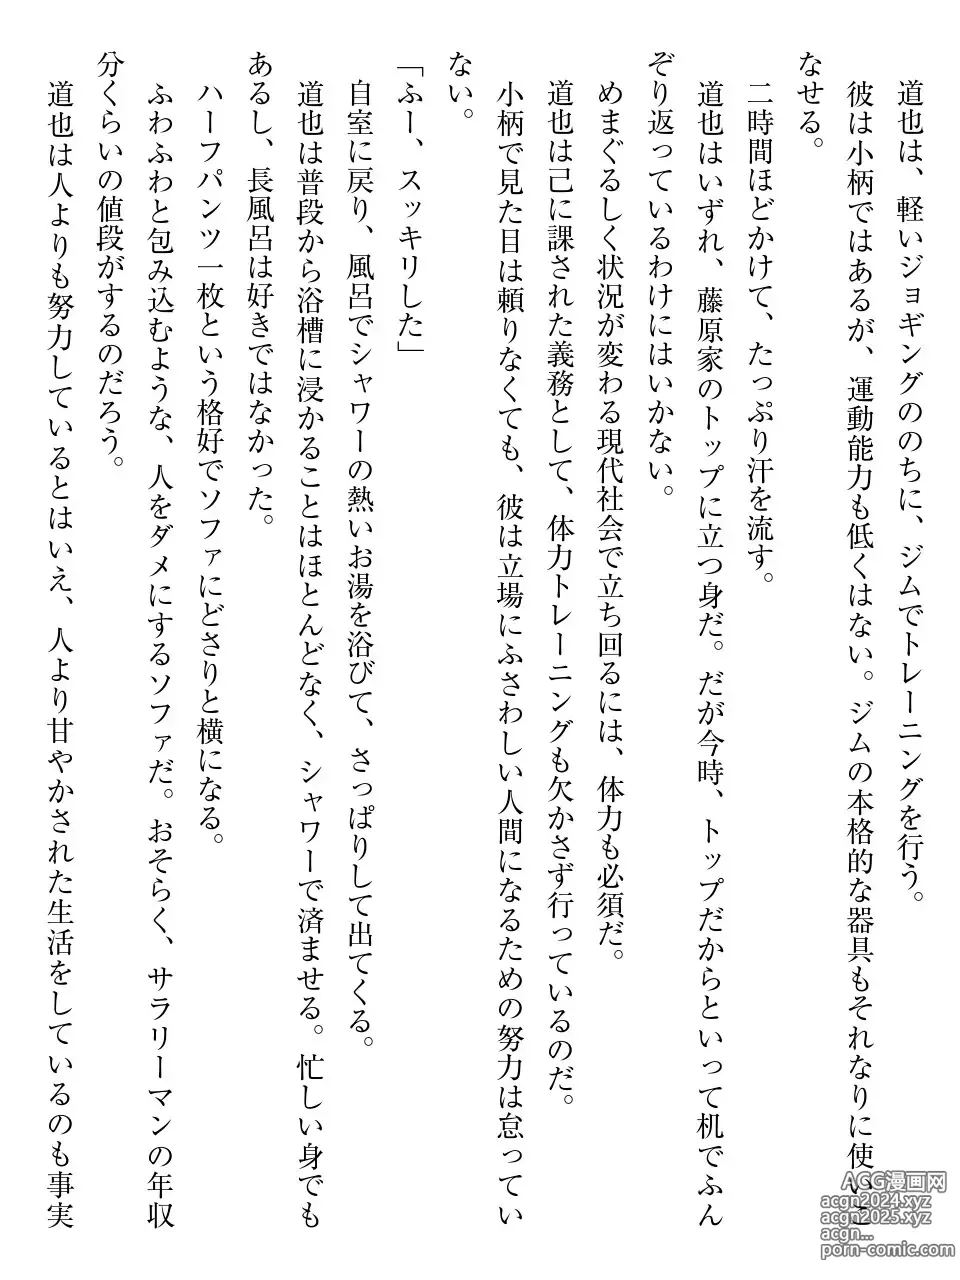 道也は、軽いジョギングののちに、ジムでトレーニングを行う。
彼は小柄ではあるが、運動能力も低くはない。ジムの本格的な器具もそれなりに使いこ
なせる。
二時間ほどかけて、たっぷり汗を流す。
道也はいずれ、藤原家のトップに立つ身だ。だが今時、トップだからといって机でふん
ぞり返っているわけにはいかない。
めまぐるしく状況が変わる現代社会で立ち回るには、体力も必須だ。
道也は己に課された義務として、体力トレーニングも欠かさず行っているのだ。
小柄で見た目は頼りなくても、彼は立場にふさわしい人間になるための努力は怠ってい
ない。
「ふー、スッキリした」
自室に戻り、風呂でシャワーの熱いお湯を浴びて、さっぱりして出てくる。
道也は普段から浴槽に浸かることはほとんどなく、シャワーで済ませる。忙しい身でも
あるし、長風呂は好きではなかった。
ハーフパンツ一枚という格好でソファにどさりと横になる。
ふわふわと包み込むような、人をダメにするソファだ。おそらく、サラリーマンの年収
分くらいの値段がするのだろう。
道也は人よりも努力しているとはいえ、人より甘やかされた生活をしているのも事実
AGG漫画网
acgn2024.xyz
acgn2025.xyz
acgn...
porn-comic.com